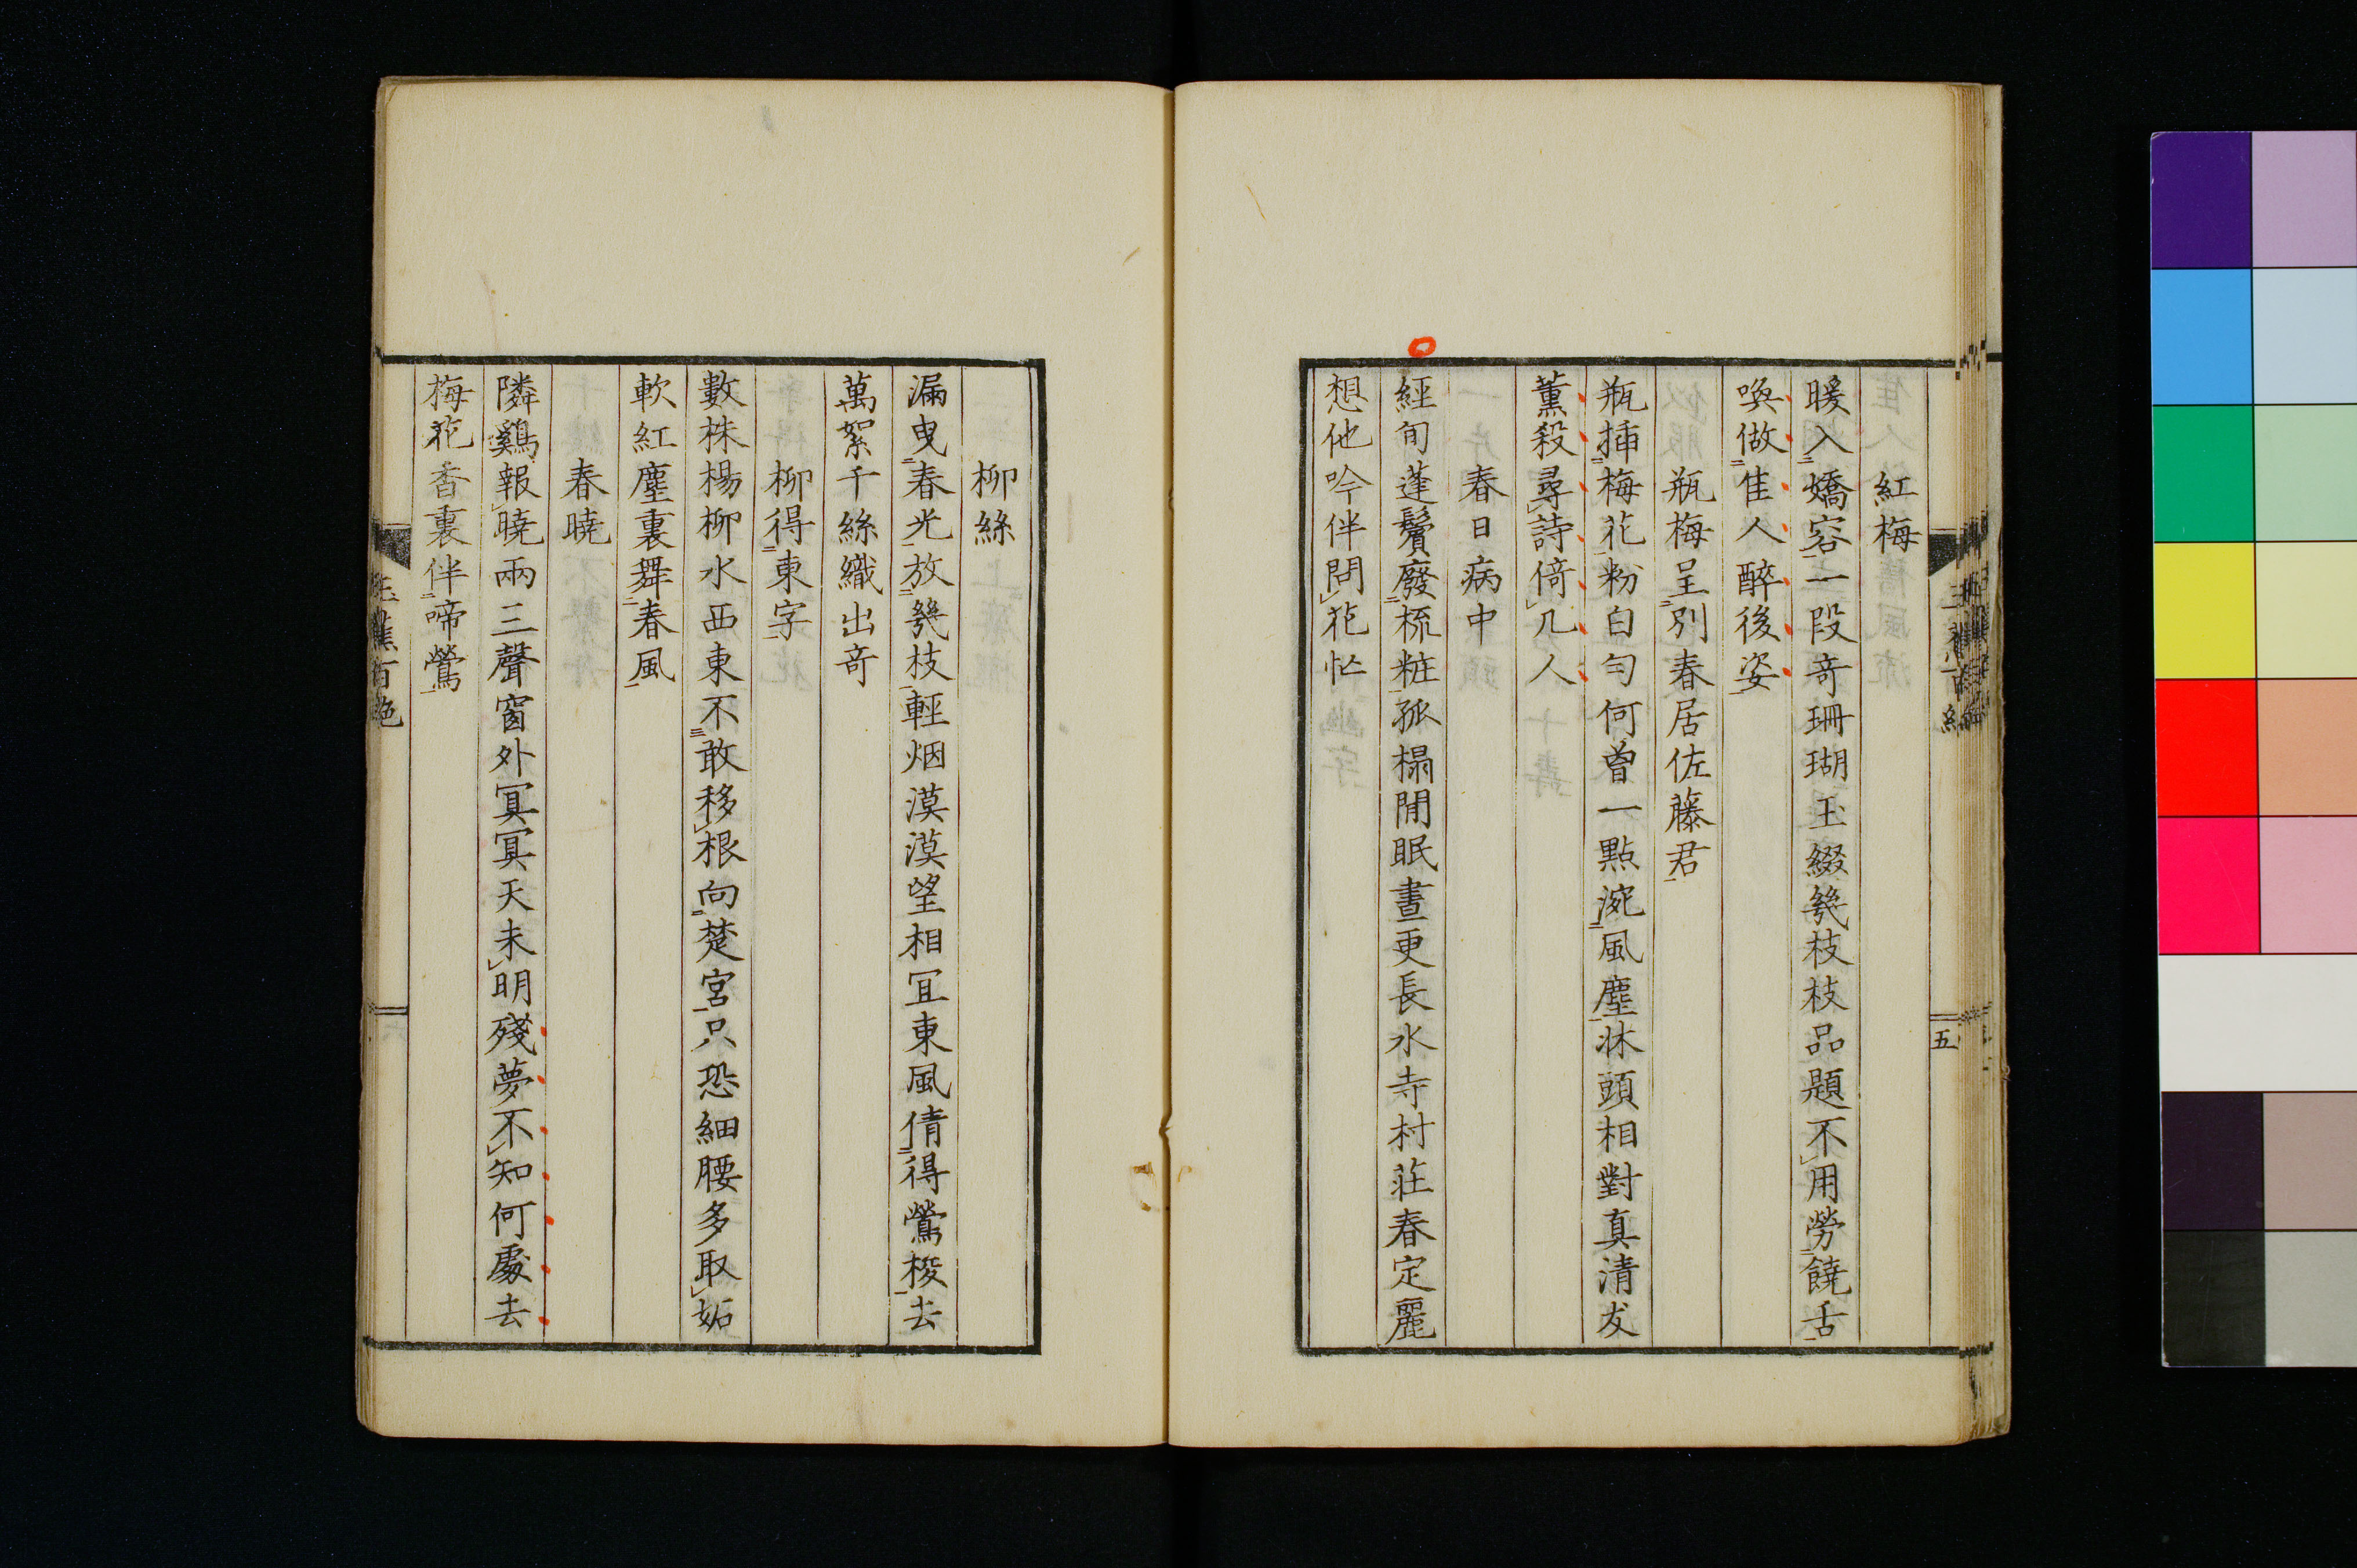 紅梅
暖入嬌容一段奇珊瑚玉綴幾枝枝品題不用勞饒舌
喚做佳人醉後姿
瓶梅呈別春居佐藤君
瓶挿梅花粉白勻何曾一點涴風塵牀頭相對真清友
薰殺尋詩倚几人
春日病中
經旬蓬鬢廢梳粧孤榻閒眠晝更長水寺村莊春定麗
想他吟伴問花忙
五
柳絲
漏曳春光放幾枝輕烟漠漠望相冝東風倩得鶯梭去
萬絮千絲織出奇
柳得東字
數株楊柳水西東不敢移根向楚宮只恐細腰多取妬
軟紅塵裏舞春風
春曉
隣鷄報曉兩三聲窗外冥冥天未明殘夢不知何處去
梅花香裏伴啼鶯